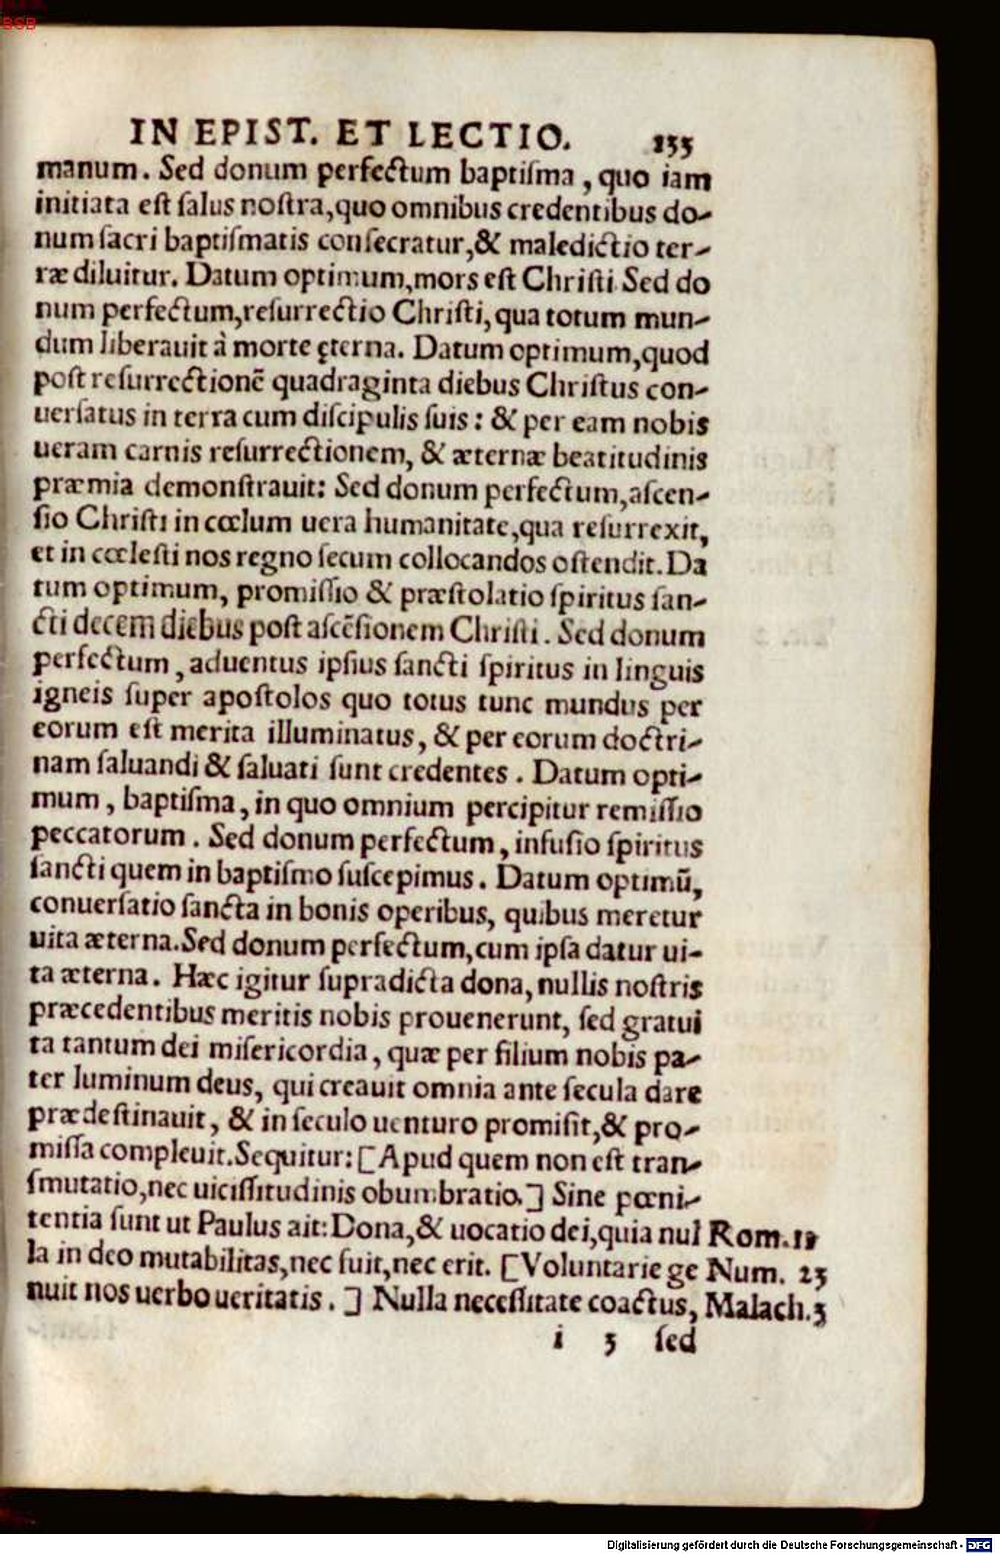 BSB
IN EPIST. ET LECTIO. 133
manum. Sed donum perfectum baptiſma, quo iam
initiata eſt ſalus noſtra, quo omnibus credentibus do-
num ſacri baptiſmatis conſecratur, & maledictio ter-
ræ diluitur. Datum optimum, mors eſt Chriſti. Sed do
num perfectum, reſurrectio Chriſti, qua totum mun-
dum liberauit à morte ęterna. Datum optimum, quod
poſt reſurrectionẽ quadraginta diebus Chriſtus con-
uerſatus in terra cum diſcipulis ſuis: & per eam nobis
ueram carnis reſurrectionem, & æternæ beatitudinis
præmia demonſtrauit: Sed donum perfectum, aſcen-
ſio Chriſti in cœlum uera humanitate, qua reſurrexit,
et in cœleſti nos regno ſecum collocandos oſtendit. Da
tum optimum, promiſſio & præſtolatio ſpiritus ſan-
cti decem diebus poſt aſcẽſionem Chriſti. Sed donum
perfectum, aduentus ipſius ſancti ſpiritus in linguis
igneis ſuper apoſtolos quo totus tunc mundus per
eorum eſt merita illuminatus, & per eorum doctri-
nam ſaluandi & ſaluati ſunt credentes. Datum opti-
mum, baptiſma, in quo omnium percipitur remiſſio
peccatorum. Sed donum perfectum, infuſio ſpiritus
ſancti quem in baptiſmo ſuſcepimus. Datum optimũ,
conuerſatio ſancta in bonis operibus, quibus meretur
uita æterna. Sed donum perfectum, cum ipſa datur ui-
ta æterna. Hæc igitur ſupradicta dona, nullis noſtris
præcedentibus meritis nobis prouenerunt, ſed gratui
ta tantum dei miſericordia, quæ per filium nobis pa-
ter luminum deus, qui creauit omnia ante ſecula dare
prædeſtinauit, & in ſeculo uenturo promiſit, & pro-
miſſa compleuit. Sequitur: [Apud quem non eſt tran-
ſmutatio, nec uiciſſitudinis obumbratio.] Sine pœni-
tentia ſunt ut Paulus ait: Dona, & uocatio dei, quia nul Rom. 11
la in deo mutabilitas, nec fuit, nec erit. [Voluntarie ge Num. 23
nuit nos uerbo ueritatis.] Nulla neceſſitate coactus, Malach. 3
i 3 ſed
Digitalisierung gefördert durch die Deutsche Forschungsgemeinschaft - DFG